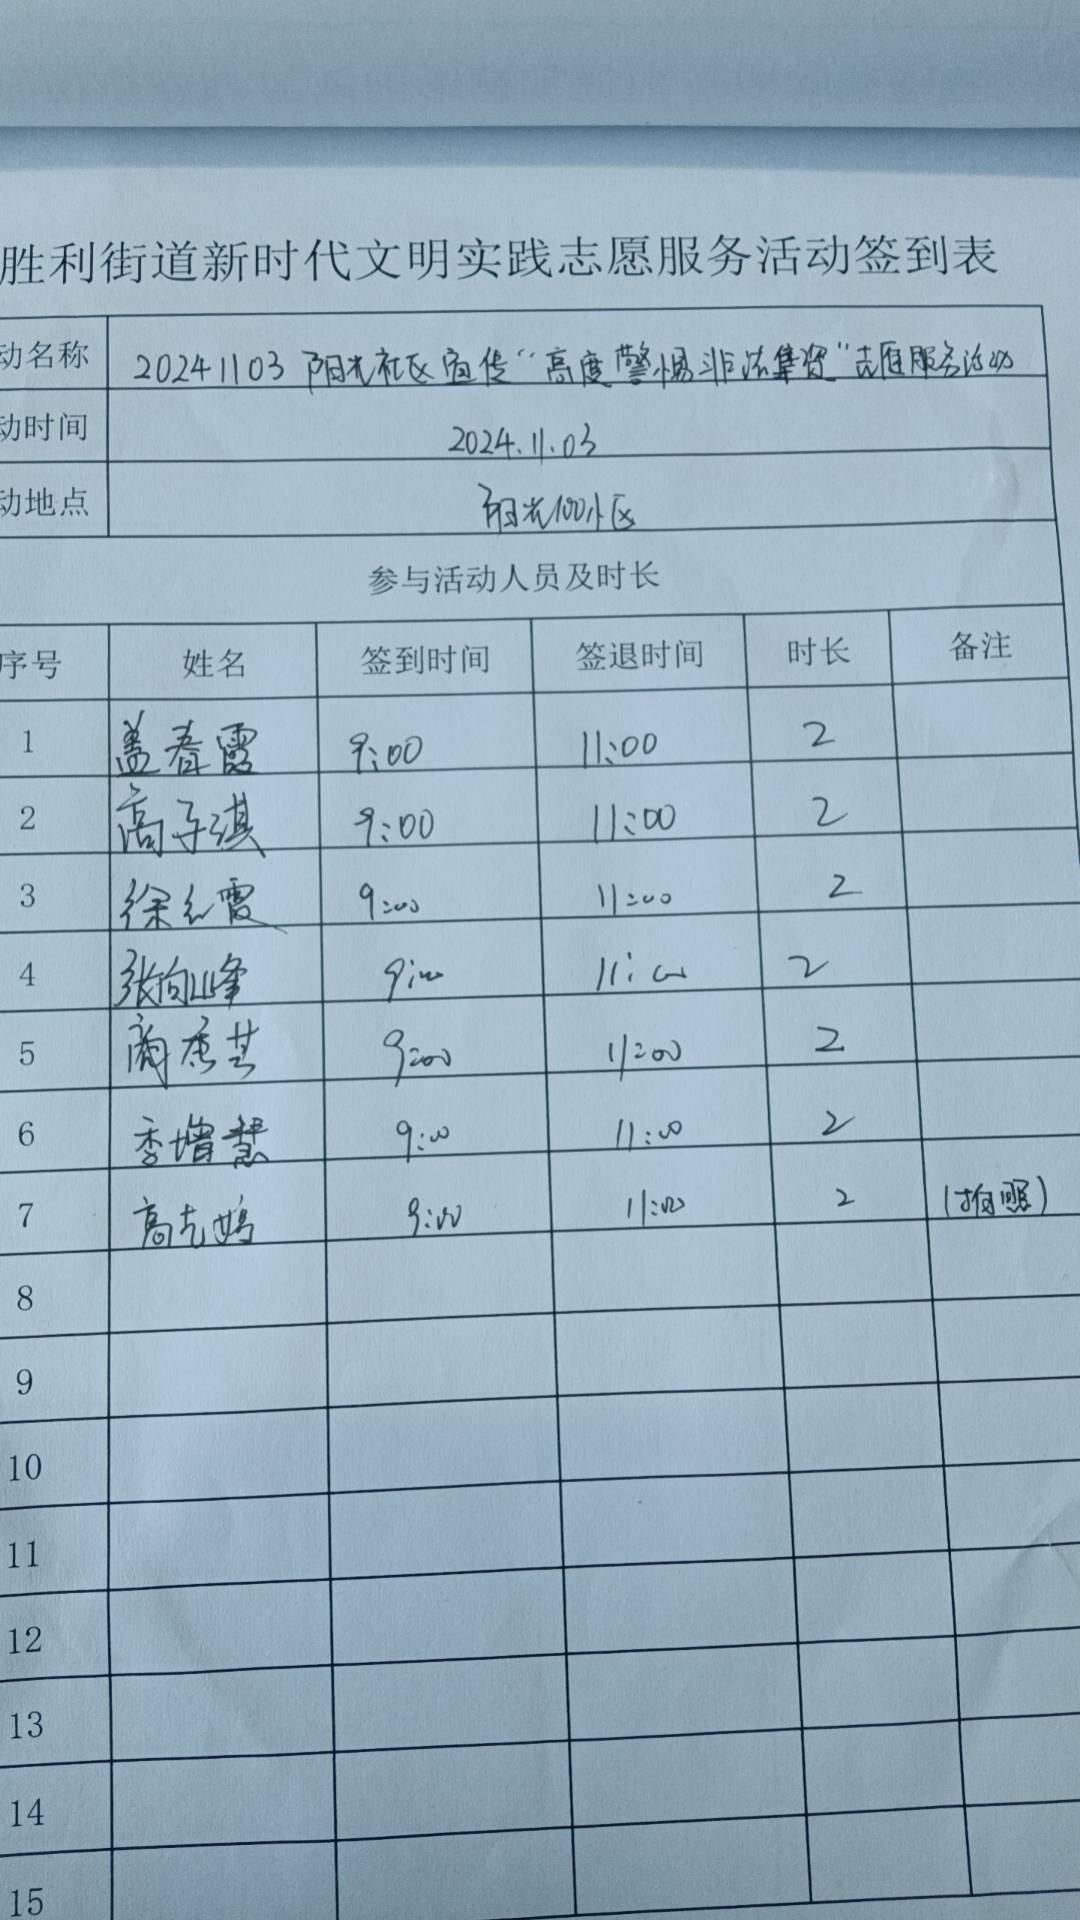 胜利街道新时代文明实践志愿服务活动签到表
动名称 20241103 阳光社区宣传“高度警惕非法集资”志愿服务活动
动时间 2024.11.03
动地点 阳光100小区
参与活动人员及时长
序号 姓名 签到时间 签退时间 时长 备注
1 盖春霞 9:00 11:00 2
2 高子淇 9:00 11:00 2
3 徐红霞 9:00 11:00 2
4 张向峰 9:00 11:00 2
5 9:00 11:00 2
6 季增慧 9:00 11:00 2
7 高 9:00 11:00 2 (拍照)
8
9
10
11
12
13
14
15